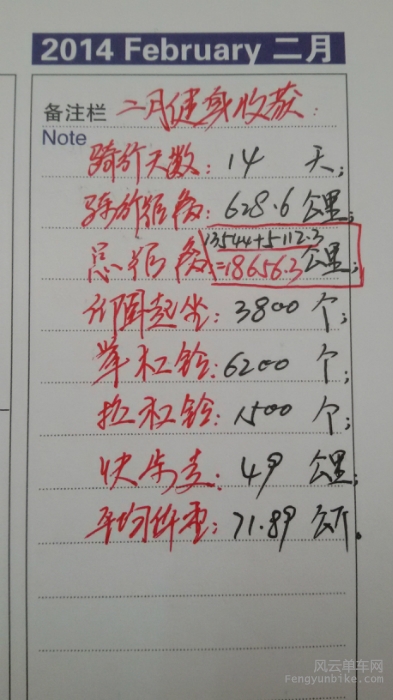 2014 February 二月
备注栏 二月健身收获:
Note
骑行天数: 14 天;
骑行距离: 628.6 公里;
13544+5112.3
总距离 =18656.3 公里;
仰卧起坐: 3800 个;
举杠铃: 6200 个;
拉杠铃: 1500 个;
快步走: 49 公里;
平均体重: 71.89 公斤.
风云单车网
Fengyunbike.com